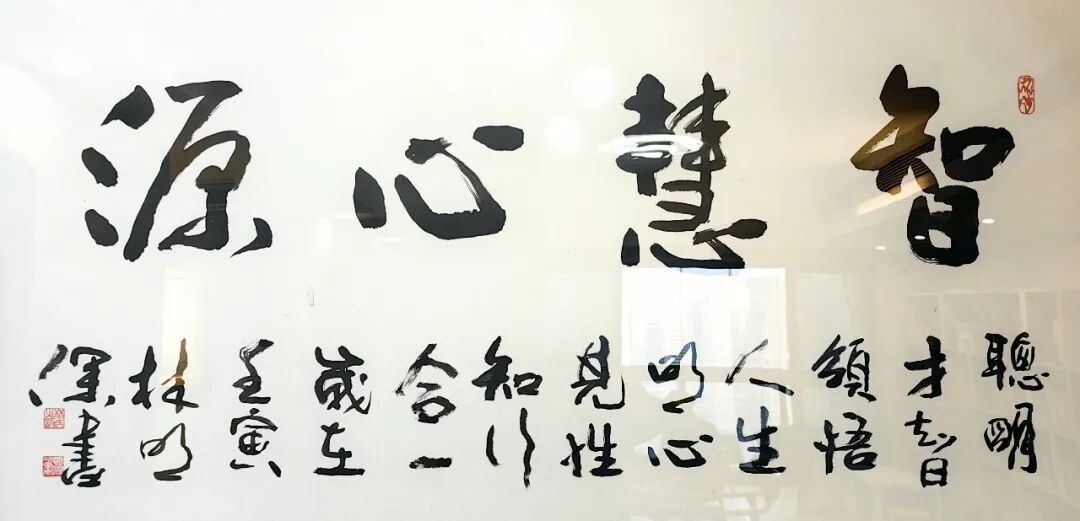 智慧心源
聰明
才智
領悟
人生
明心
見性
知行
合一
歲在
壬寅
林明
深書